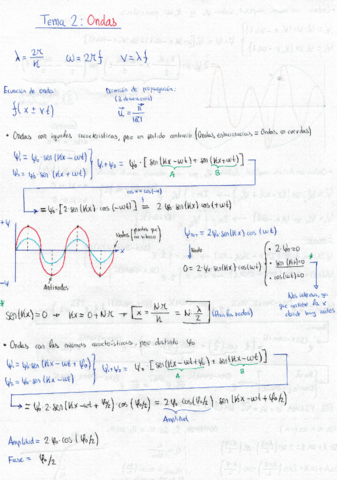 Tema 2: Ondas
λ = 2π/k   ω = 2πf   v = λf
Ecuación de onda:   Dirección de propagación:
(2 dimensiones)
f(x ± vt)   u⃗ = k⃗/|k⃗|
• Ondas con iguales características, pero en sentido contrario (Ondas estacionarias = Ondas en cuerdas)
ψ₁ = ψ₀ · sen(kx - ωt)
ψ₂ = ψ₀ sen(kx + ωt)
ψ₁ + ψ₂ = ψ₀ · [sen(kx - ωt) + sen(kx + ωt)]
A   B
cos x = cos(-x)
= ψ₀ · [2 · sen(kx) · cos(-ωt)] = 2 ψ₀ · sen(kx) cos(+ωt)
+ψ
Nodos (puntos que no vibran)
x
-ψ
Antinodos
2ψ₀ sen(kx) cos(ωt)
Nodo
0 = 2ψ₀ sen(kx) cos(ωt)
• 2ψ₀ = 0
• sen(kx) = 0 *
• cos(ωt) = 0
* sen(kx) = 0 → kx = 0 + Nπ → x = Nπ/k = N · λ/2 (Para los nodos)
• Ondas con las mismas características, pero desfasada φ₀
ψ₁ = ψ₀ sen(kx - ωt + φ₀)
ψ₂ = ψ₀ sen(kx - ωt)
ψ₁ + ψ₂ = ψ₀ · [sen(kx - ωt + φ₀) + sen(kx - ωt)]
A   B
= ψ₀ · 2 · sen(kx - ωt + φ₀/2) · cos(φ₀/2) = 2ψ₀ cos(φ₀/2) · sen(kx - ωt + φ₀/2)
Amplitud
Amplitud = 2ψ₀ · cos(φ₀/2)
Fase = φ₀/2